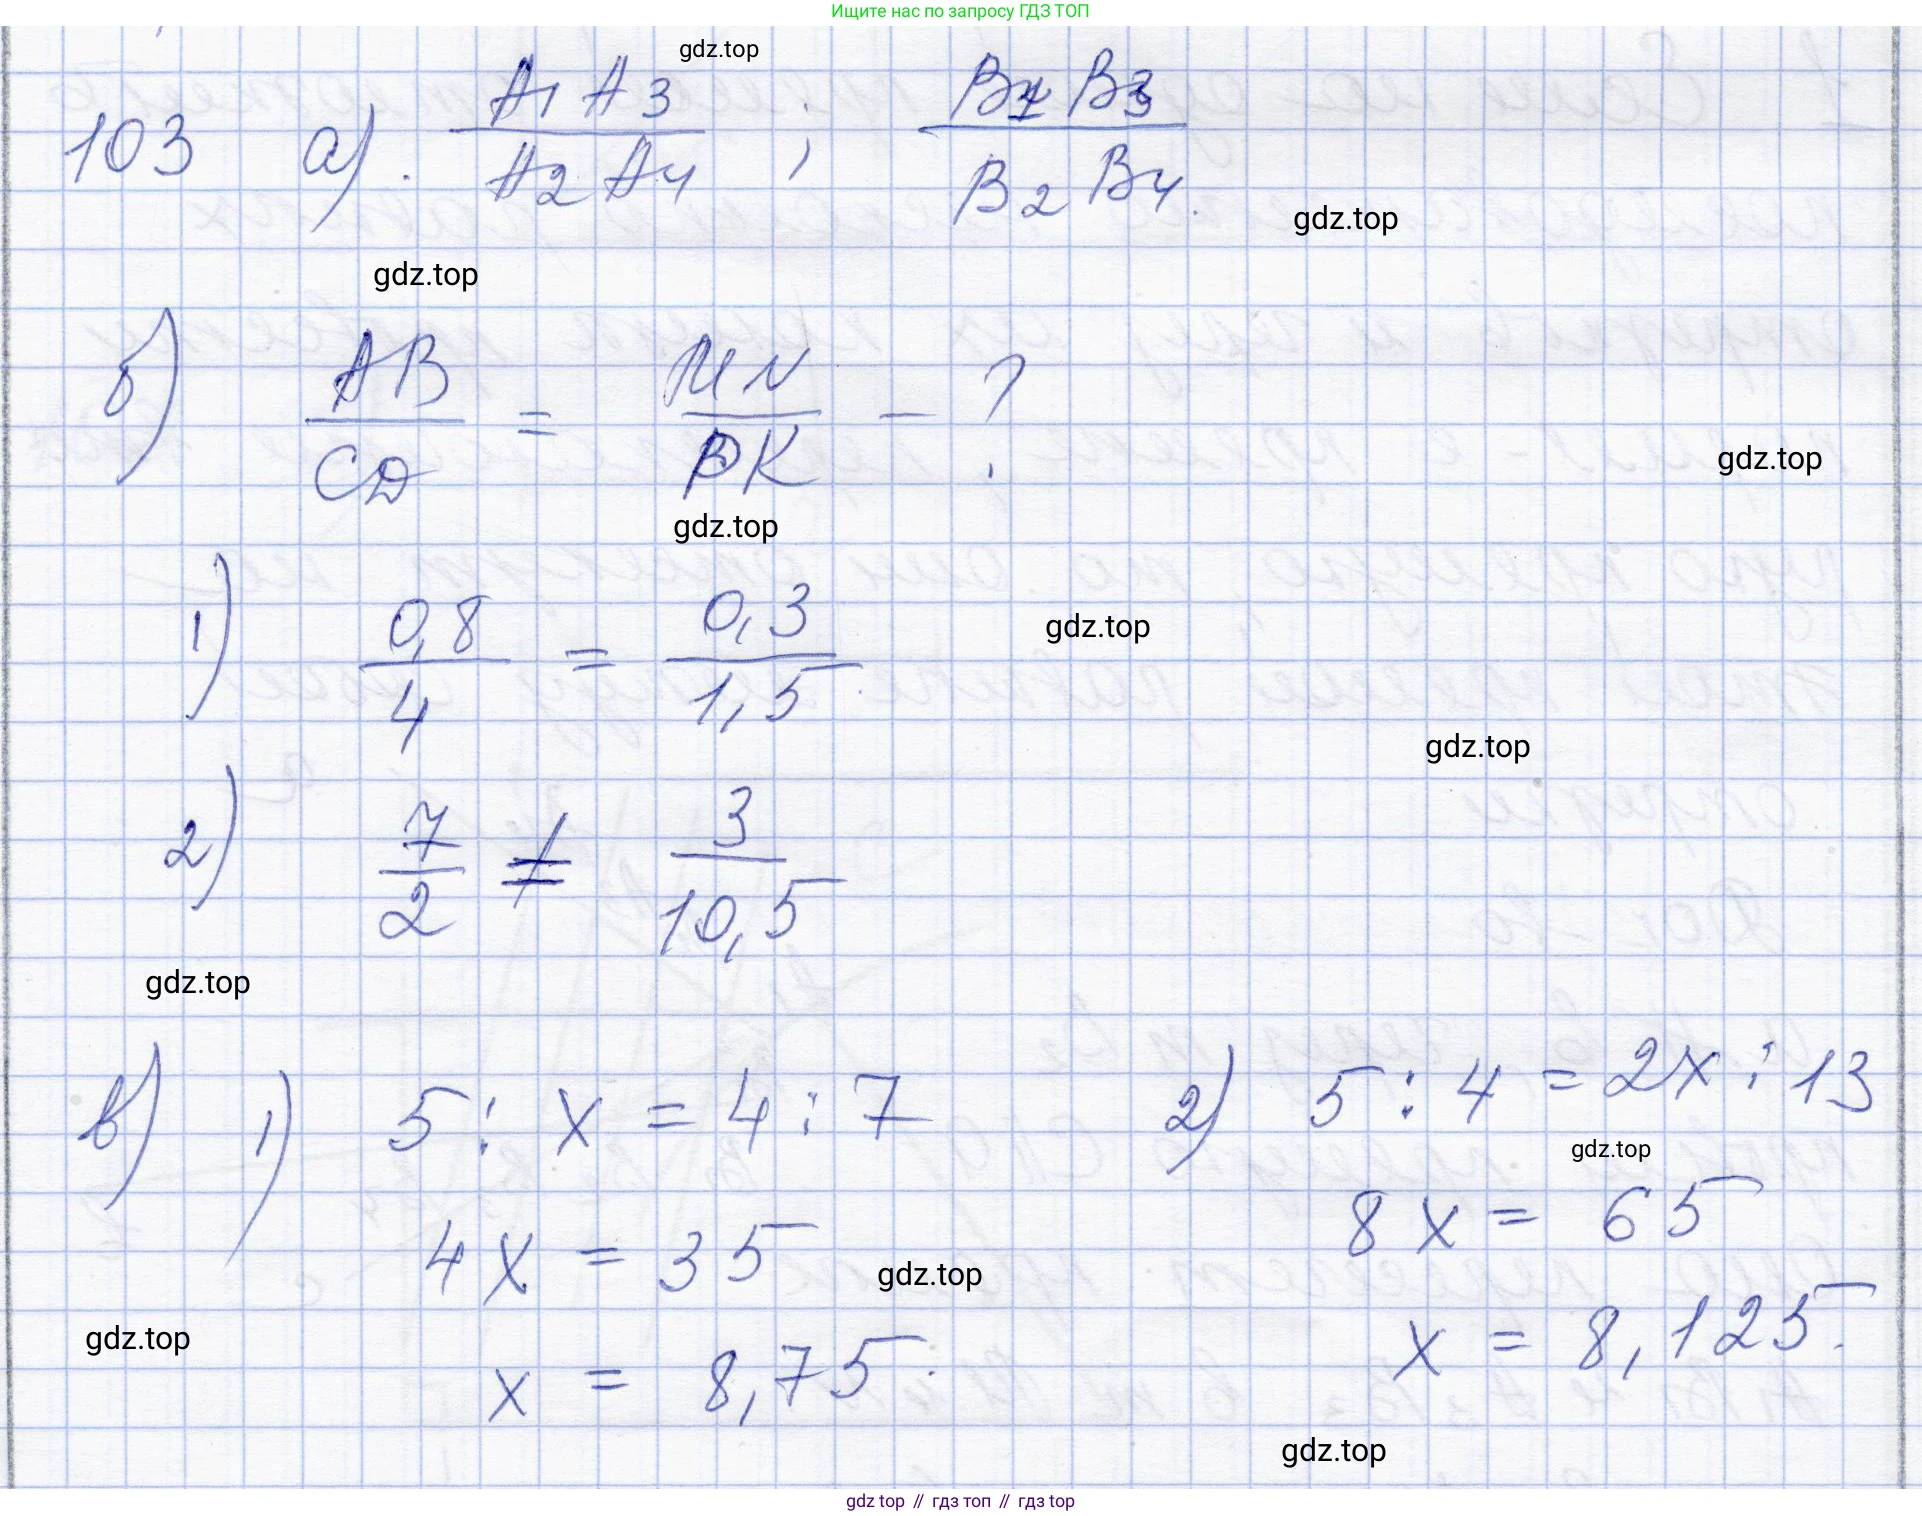 Ищите нас по запросу ГДЗ ТОП
gdz.top
103 а). A1 A3 / A2 A4 ; B1 B3 / B2 B4.
gdz.top
gdz.top
б) AB / CD = MN / PK - ?
gdz.top
gdz.top
1) 0,8 / 4 = 0,3 / 1,5
gdz.top
gdz.top
2) 7 / 2 ≠ 3 / 10,5
gdz.top
в) 1) 5 : x = 4 : 7
4x = 35
gdz.top
gdz.top
x = 8,75.
2) 5 : 4 = 2x : 13
gdz.top
8x = 65
x = 8,125.
gdz.top
gdz top // гдз топ // гдз top